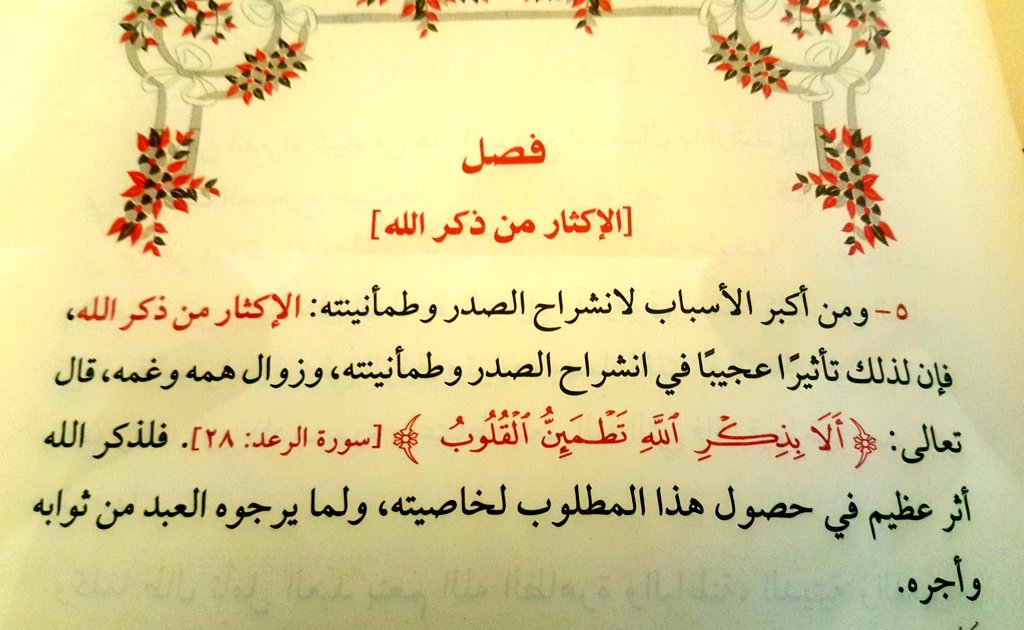 فصل
[الإكثار من ذكر الله]
٥- ومن أكبر الأسباب لانشراح الصدر وطمأنينته: الإكثار من ذكر الله،
فإن لذلك تأثيرًا عجيبًا في انشراح الصدر وطمأنينته، وزوال همه وغمه، قال
تعالى: ﴿أَلَا بِذِكْرِ ٱللَّهِ تَطْمَئِنُّ ٱلْقُلُوبُ﴾ [سورة الرعد: ٢٨]. فلذكر الله
أثر عظيم في حصول هذا المطلوب لخاصيته، ولما يرجوه العبد من ثوابه
وأجره.